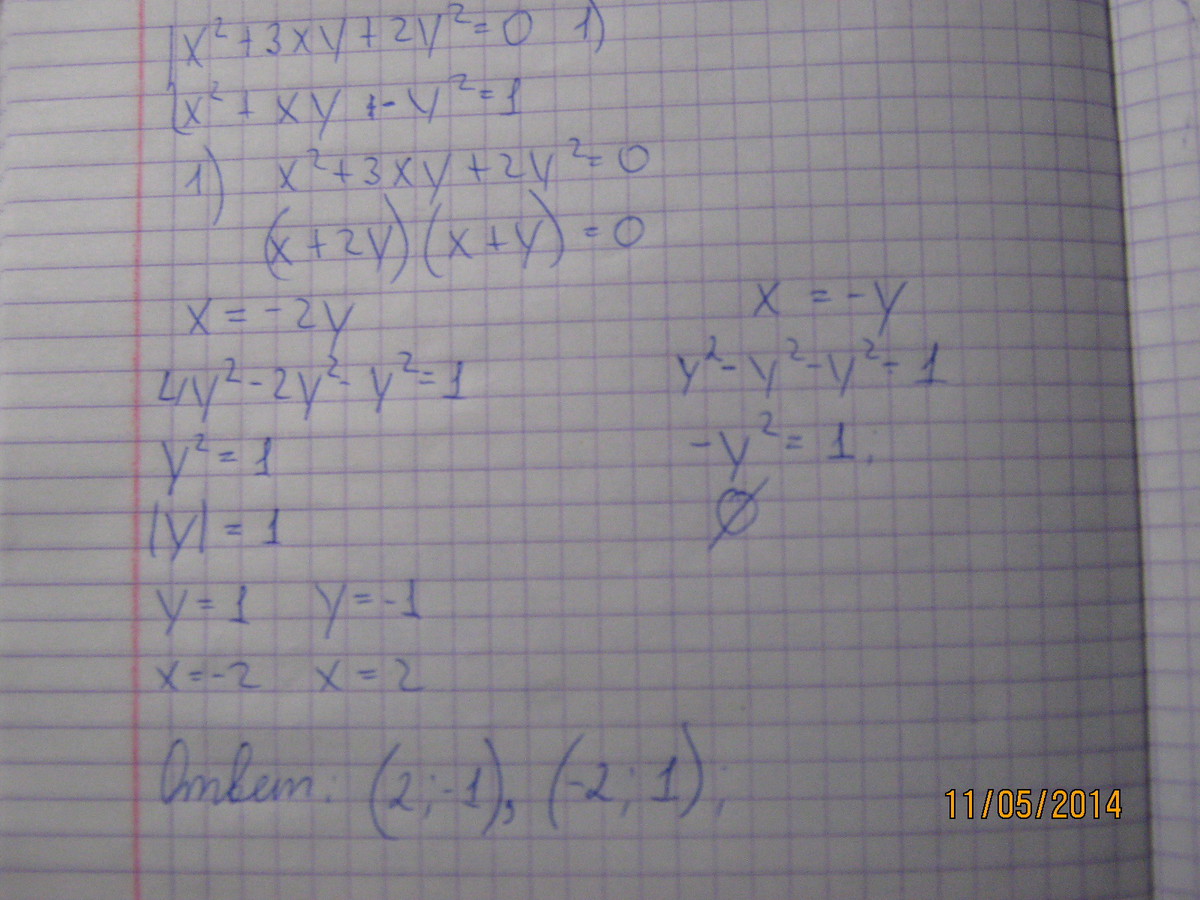 {x² + 3xy + 2y² = 0 1)
{x² + xy - y² = 1
1) x² + 3xy + 2y² = 0
(x + 2y)(x + y) = 0
x = -2y
x = -y
4y² - 2y² - y² = 1
y² - y² - y² = 1
y² = 1
-y² = 1;
|y| = 1
∅
y = 1 y = -1
x = -2 x = 2
Ответ: (2; -1), (-2; 1);
11/05/2014